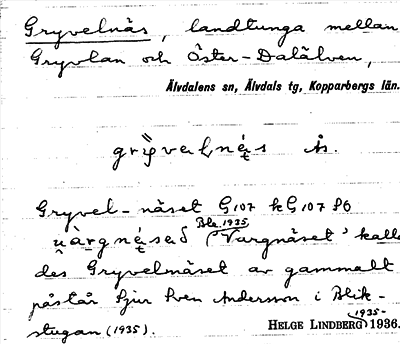 Gryvelnäs, landtunga mellan
Gryvlan och Öster-Dalälven,
Älvdalens sn, Älvdals tg, Kopparbergs län.
Gryvel-näset G107 kG107 SO
Ble. 1935
'Vargnäset' kalla-
des Gryvelnäset av gammalt
påstår Spur Sven Andersson i Blik-
stugan (1935).
HELGE LINDBERG 1935-1936.